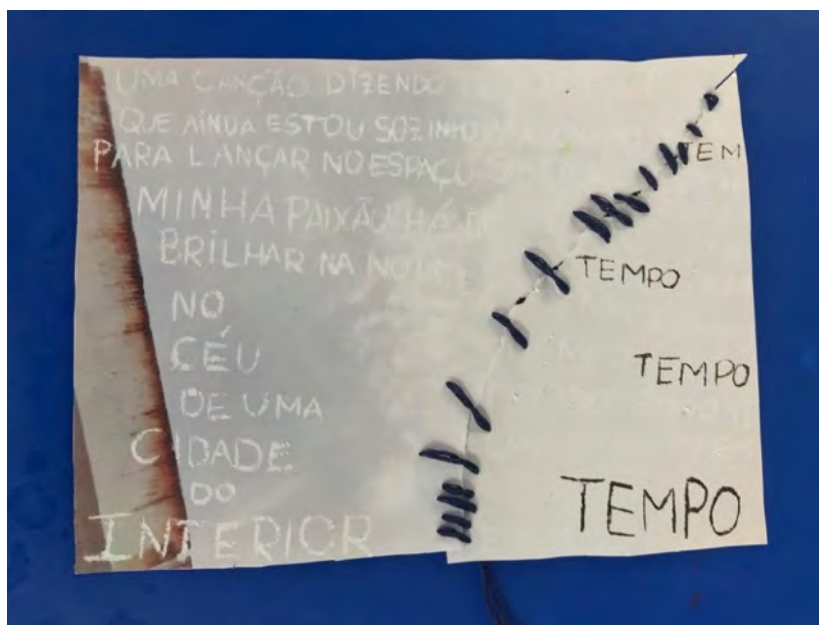 UMA CANÇÃO DIZENDO
QUE AINDA ESTOU SOZINHO
PARA LANÇAR NO ESPAÇO
MINHA PAIXÃO HÁ
BRILHAR NA
NO
CÉU
DE UMA
CIDADE
DO
INTERIOR
TEM
TEMPO
TEMPO
TEMPO